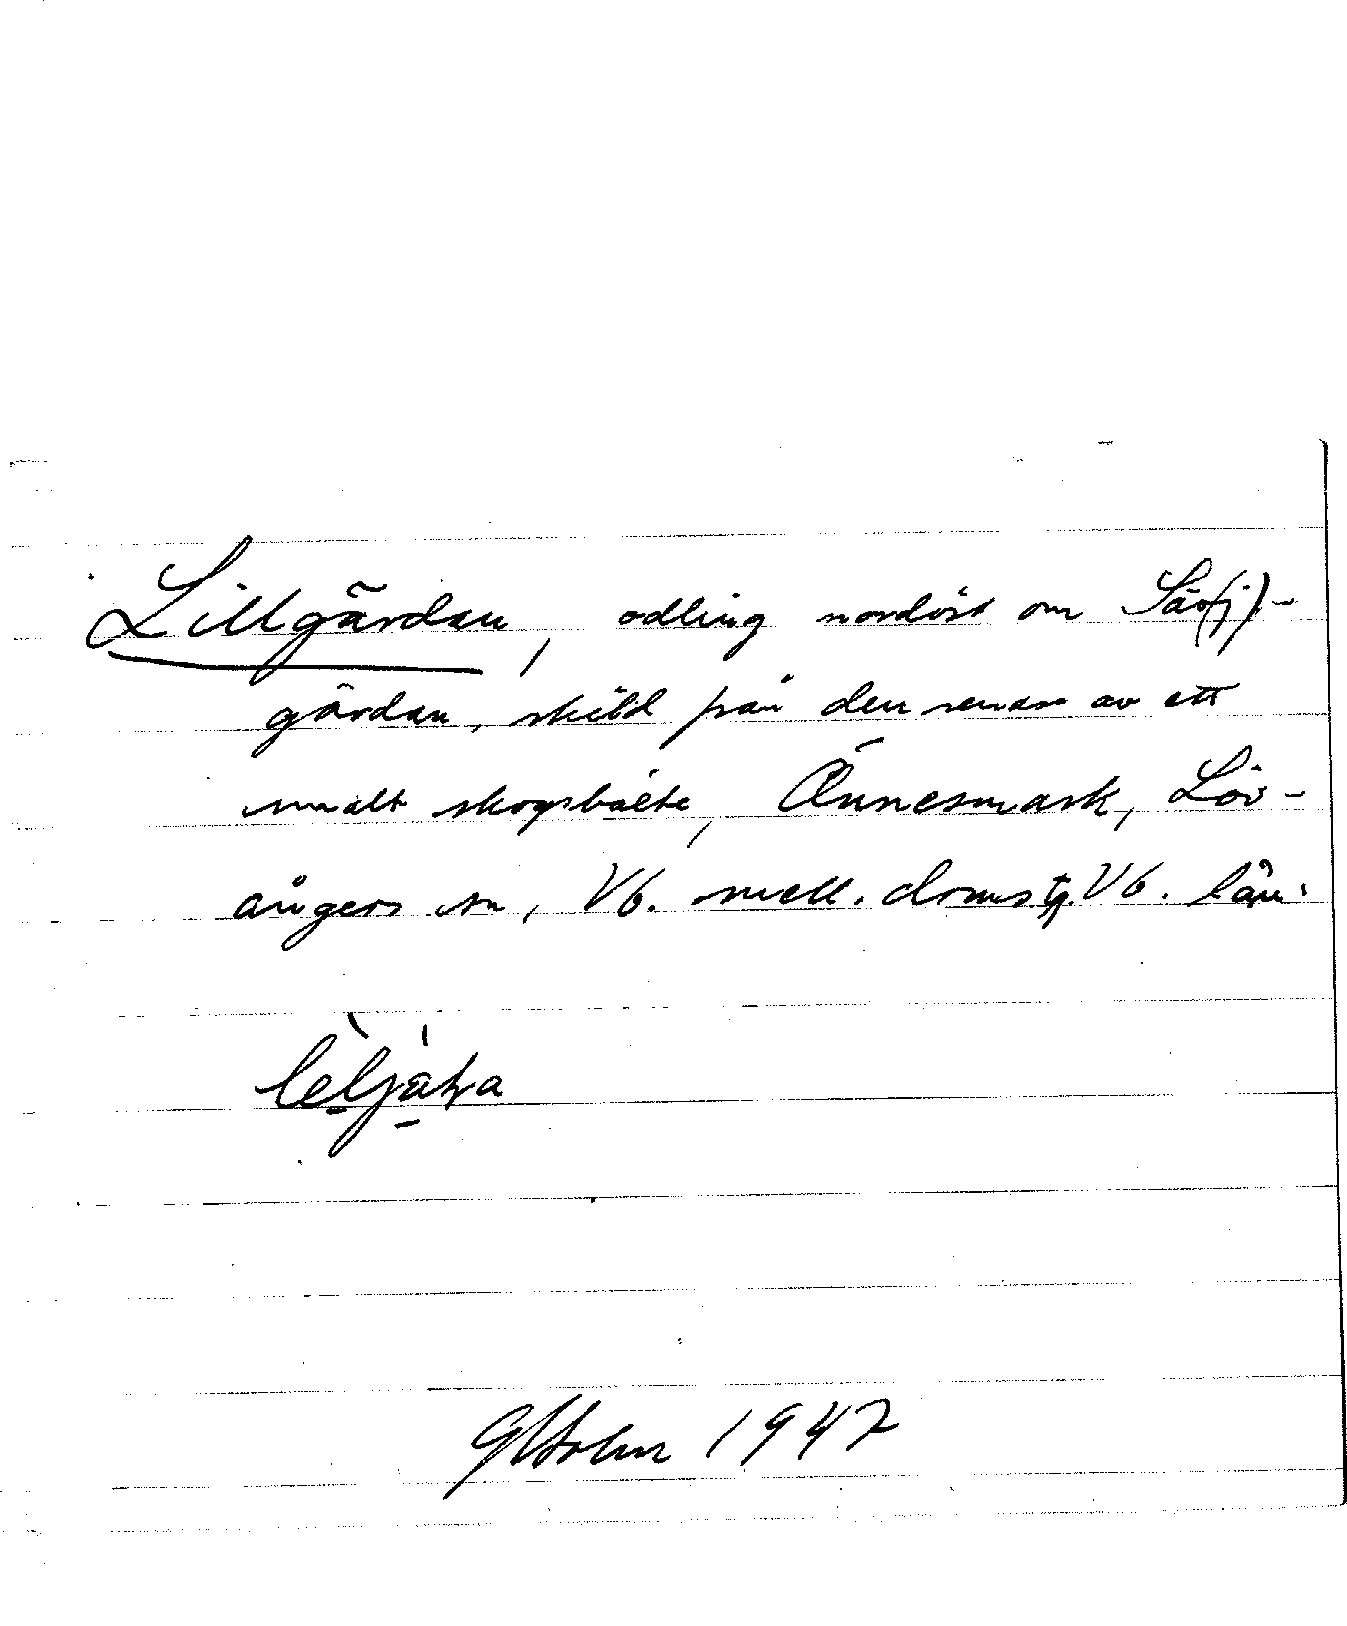 Lillgärdan, odling nordöst om Säv(j)-
gärdan, skild från den senare av ett
smalt skogsbälte, Önnesmark, Löv-
ångers sn, Vb. mell. domstg. Vb. län.
G Holm 1947